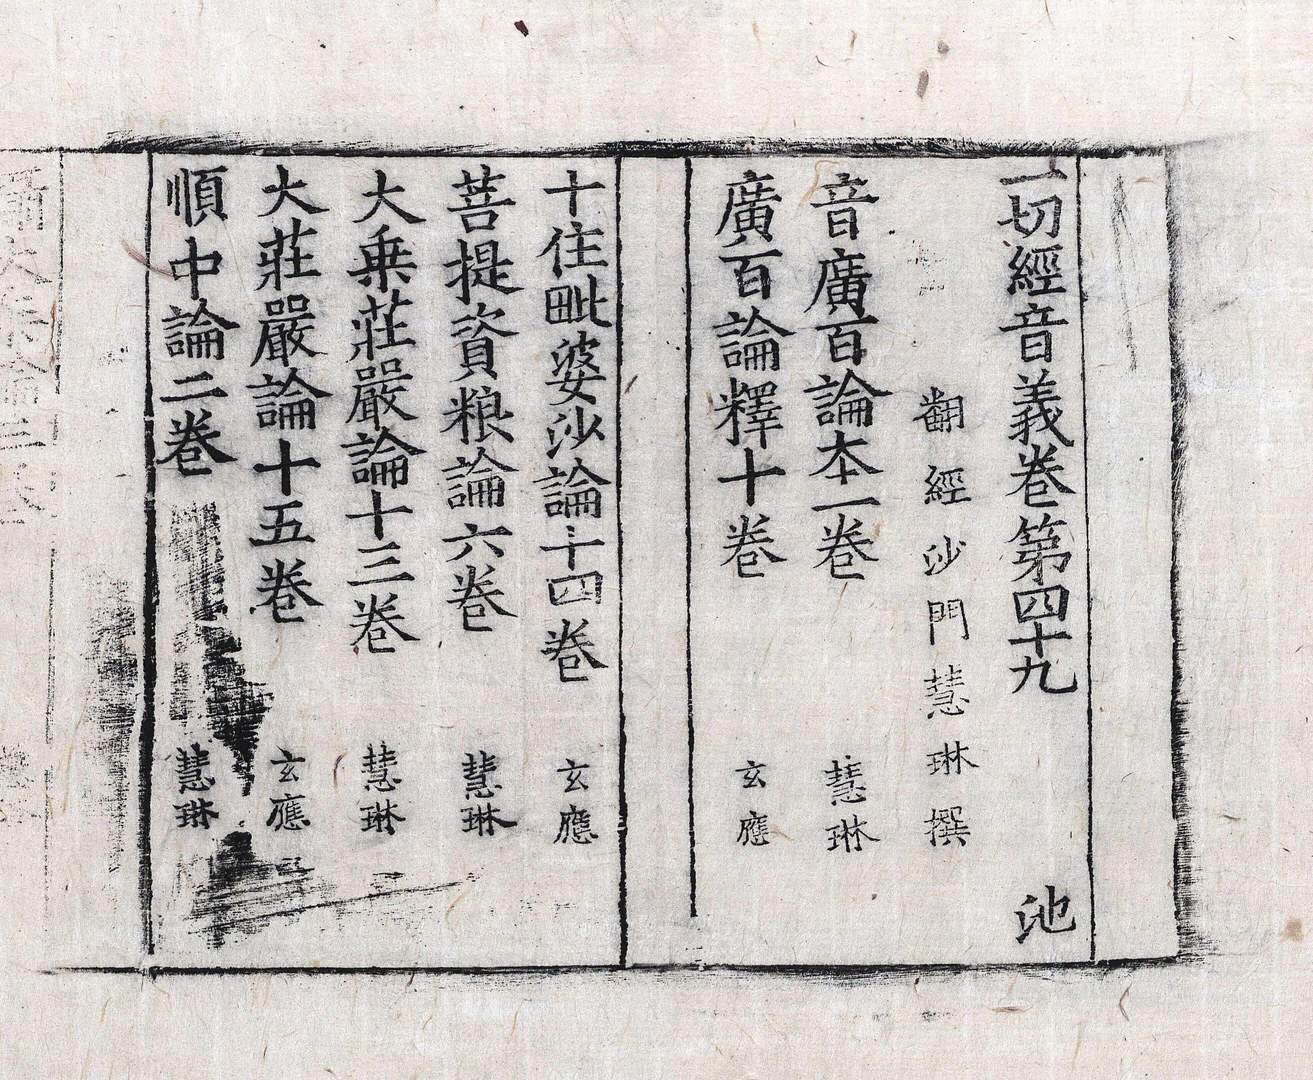 一切經音義卷第四十九　池
翻經沙門慧琳撰
音廣百論本一卷　慧琳
廣百論釋十卷　玄應
十住毗婆沙論十四卷　玄應
菩提資粮論六卷　慧琳
大乗莊嚴論十三卷　慧琳
大莊嚴論十五卷　玄應
順中論二卷　慧琳